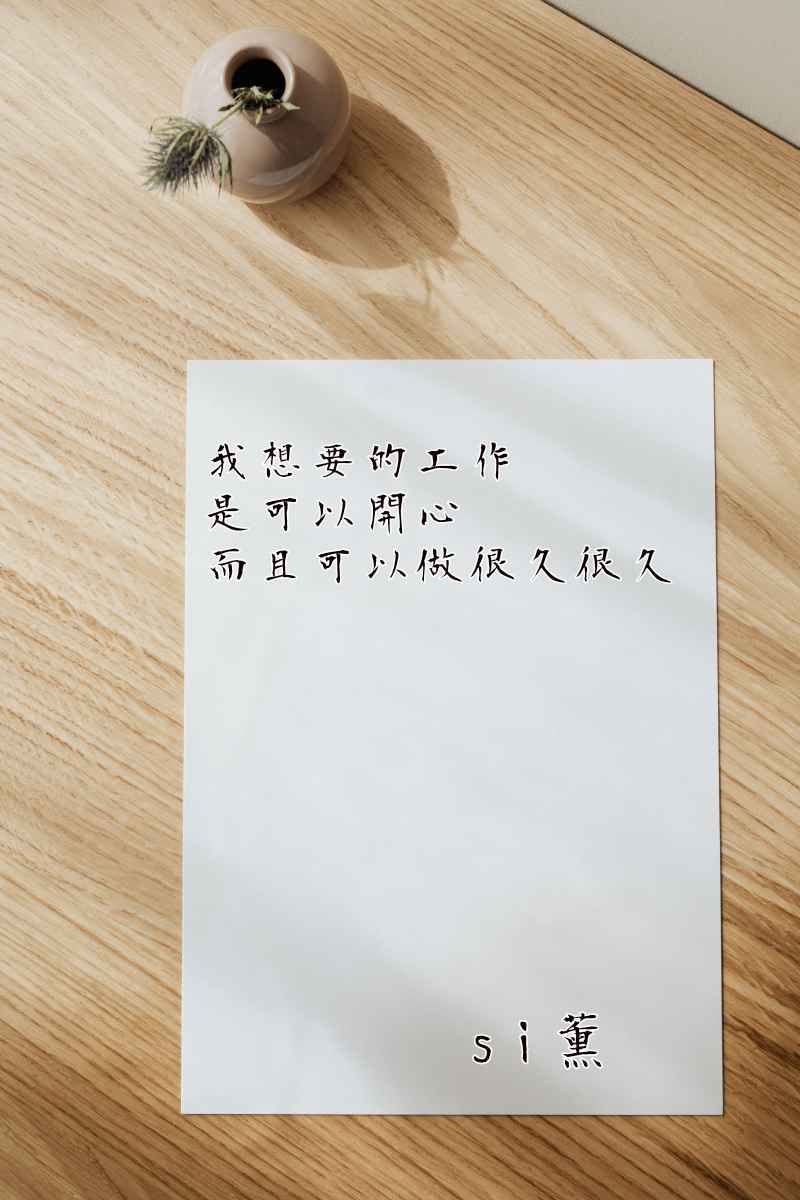 我想要的工作
是可以開心
而且可以做很久很久
si薰